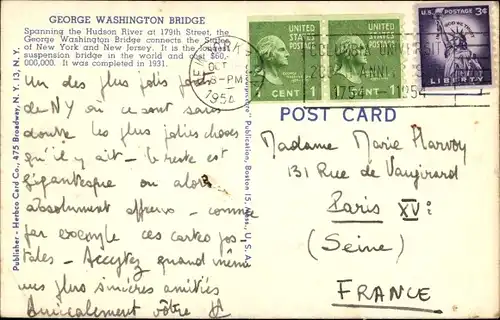 GEORGE WASHINGTON BRIDGE
Spanning the Hudson River at 179th Street, the
George Washington Bridge connects the States
of New York and New Jersey. It is the longest
suspension bridge in the world and cost $60,-
000,000. It was completed in 1931.
Un des plus jolis
de NY où ce sont sans
doute les plus jolies choses
qu'il y ait - le reste est
gigantesque ou alors
absolument affreux - comme
par exemple ces cartes pos-
tales - Acceptez quand même
mes plus sincères amitiés
Amicalement vôtre
Publisher - Herbco Card Co., 475 Broadway, N. Y. 13, N. Y.
Publication, Boston 15, Mass., U. S. A.
OCT
PM
1954
COLUMBIA UNIVERSITY
1754 - 1954
1 CENT 1
U.S. POSTAGE 3¢
IN GOD WE TRUST
LIBERTY
POST CARD
Madame Marie Harvoy
131 Rue de Vaugirard
Paris XV:
(Seine)
FRANCE